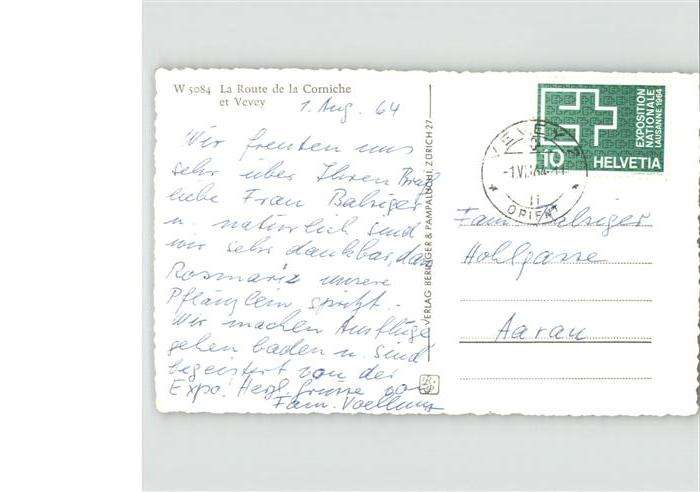 W 5084 La Route de la Corniche
et Vevey
1. Aug. 64
Wir freuten uns
sehr über Ihren Brief
liebe Frau Balsiger
u. natürlich sind
wir sehr dankbar, dass
Rosmarie unsere
Pflänzlein spritzt.
Wir machen Ausflüge
gehen baden u. sind
begeistert von der
Expo. Herzl. Grüsse von
Fam. Voellmy
VERLAG BERINGER & PAMPALUCHI, ZÜRICH 27
VEVEY
ORIENT
EXPOSITION
NATIONALE
LAUSANNE 1964
10 HELVETIA
Fam. Balsiger
Hohlgasse
Aarau